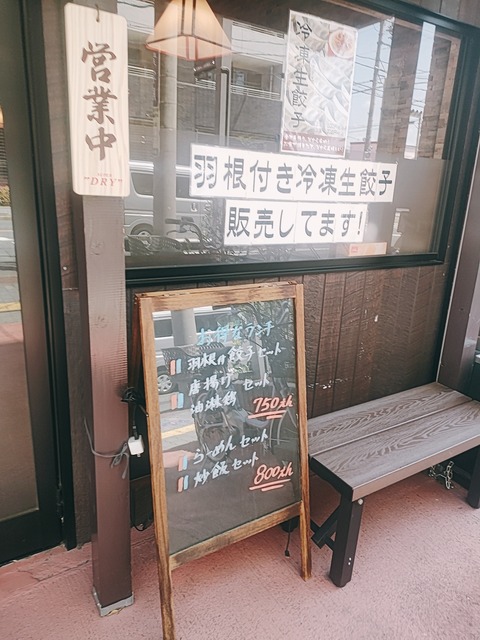 営業中
"DRY"
冷凍生餃子
羽根付き冷凍生餃子
販売してます!
お得なランチ
羽根付餃子セット
唐揚げセット
油淋鶏
750えん
らーめんセット
炒飯セット
800えん